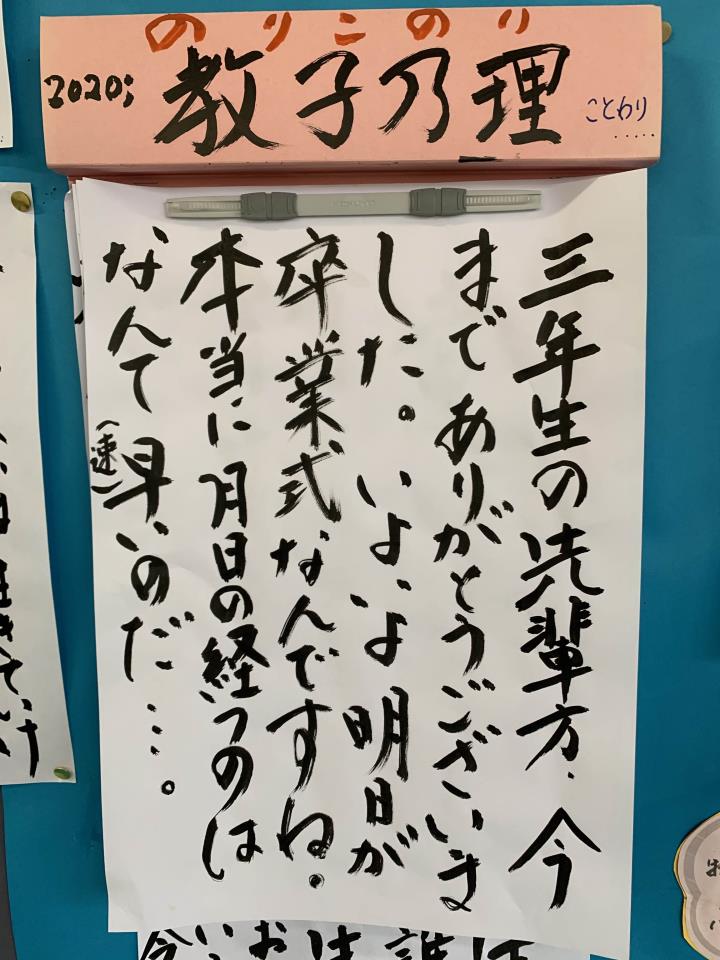 のりこのり
2020; 教子乃理 ことわり
三年生の先輩方、今
まで ありがとうございま
した。いよいよ明日が
卒業式なんですね。
本当に月日の経つのは
なんて早(速)いのだ…。